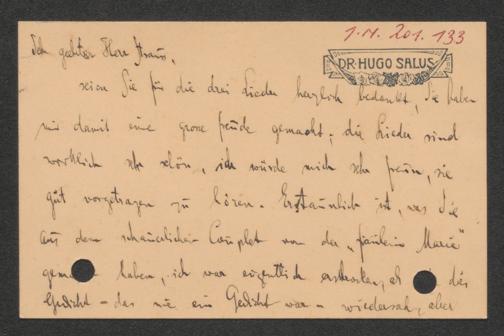 I.N. 201.133
DR. HUGO SALUS
Sehr geehrter Herr Strauss,
seien Sie für die drei Lieder herzlich bedankt, Sie haben
mir damit eine grosse Freude gemacht; die Lieder sind
wirklich sehr schön, ich würde mich sehr freuen, sie
gut vorgetragen zu hören. Erstaunlich ist, was Sie
aus dem schauerlichen Couplet von der „Fräulein Marie"
haben, ich war eigentlich erschrocken, als das
Gedicht – das nie ein Gedicht war – wiedersah, aber